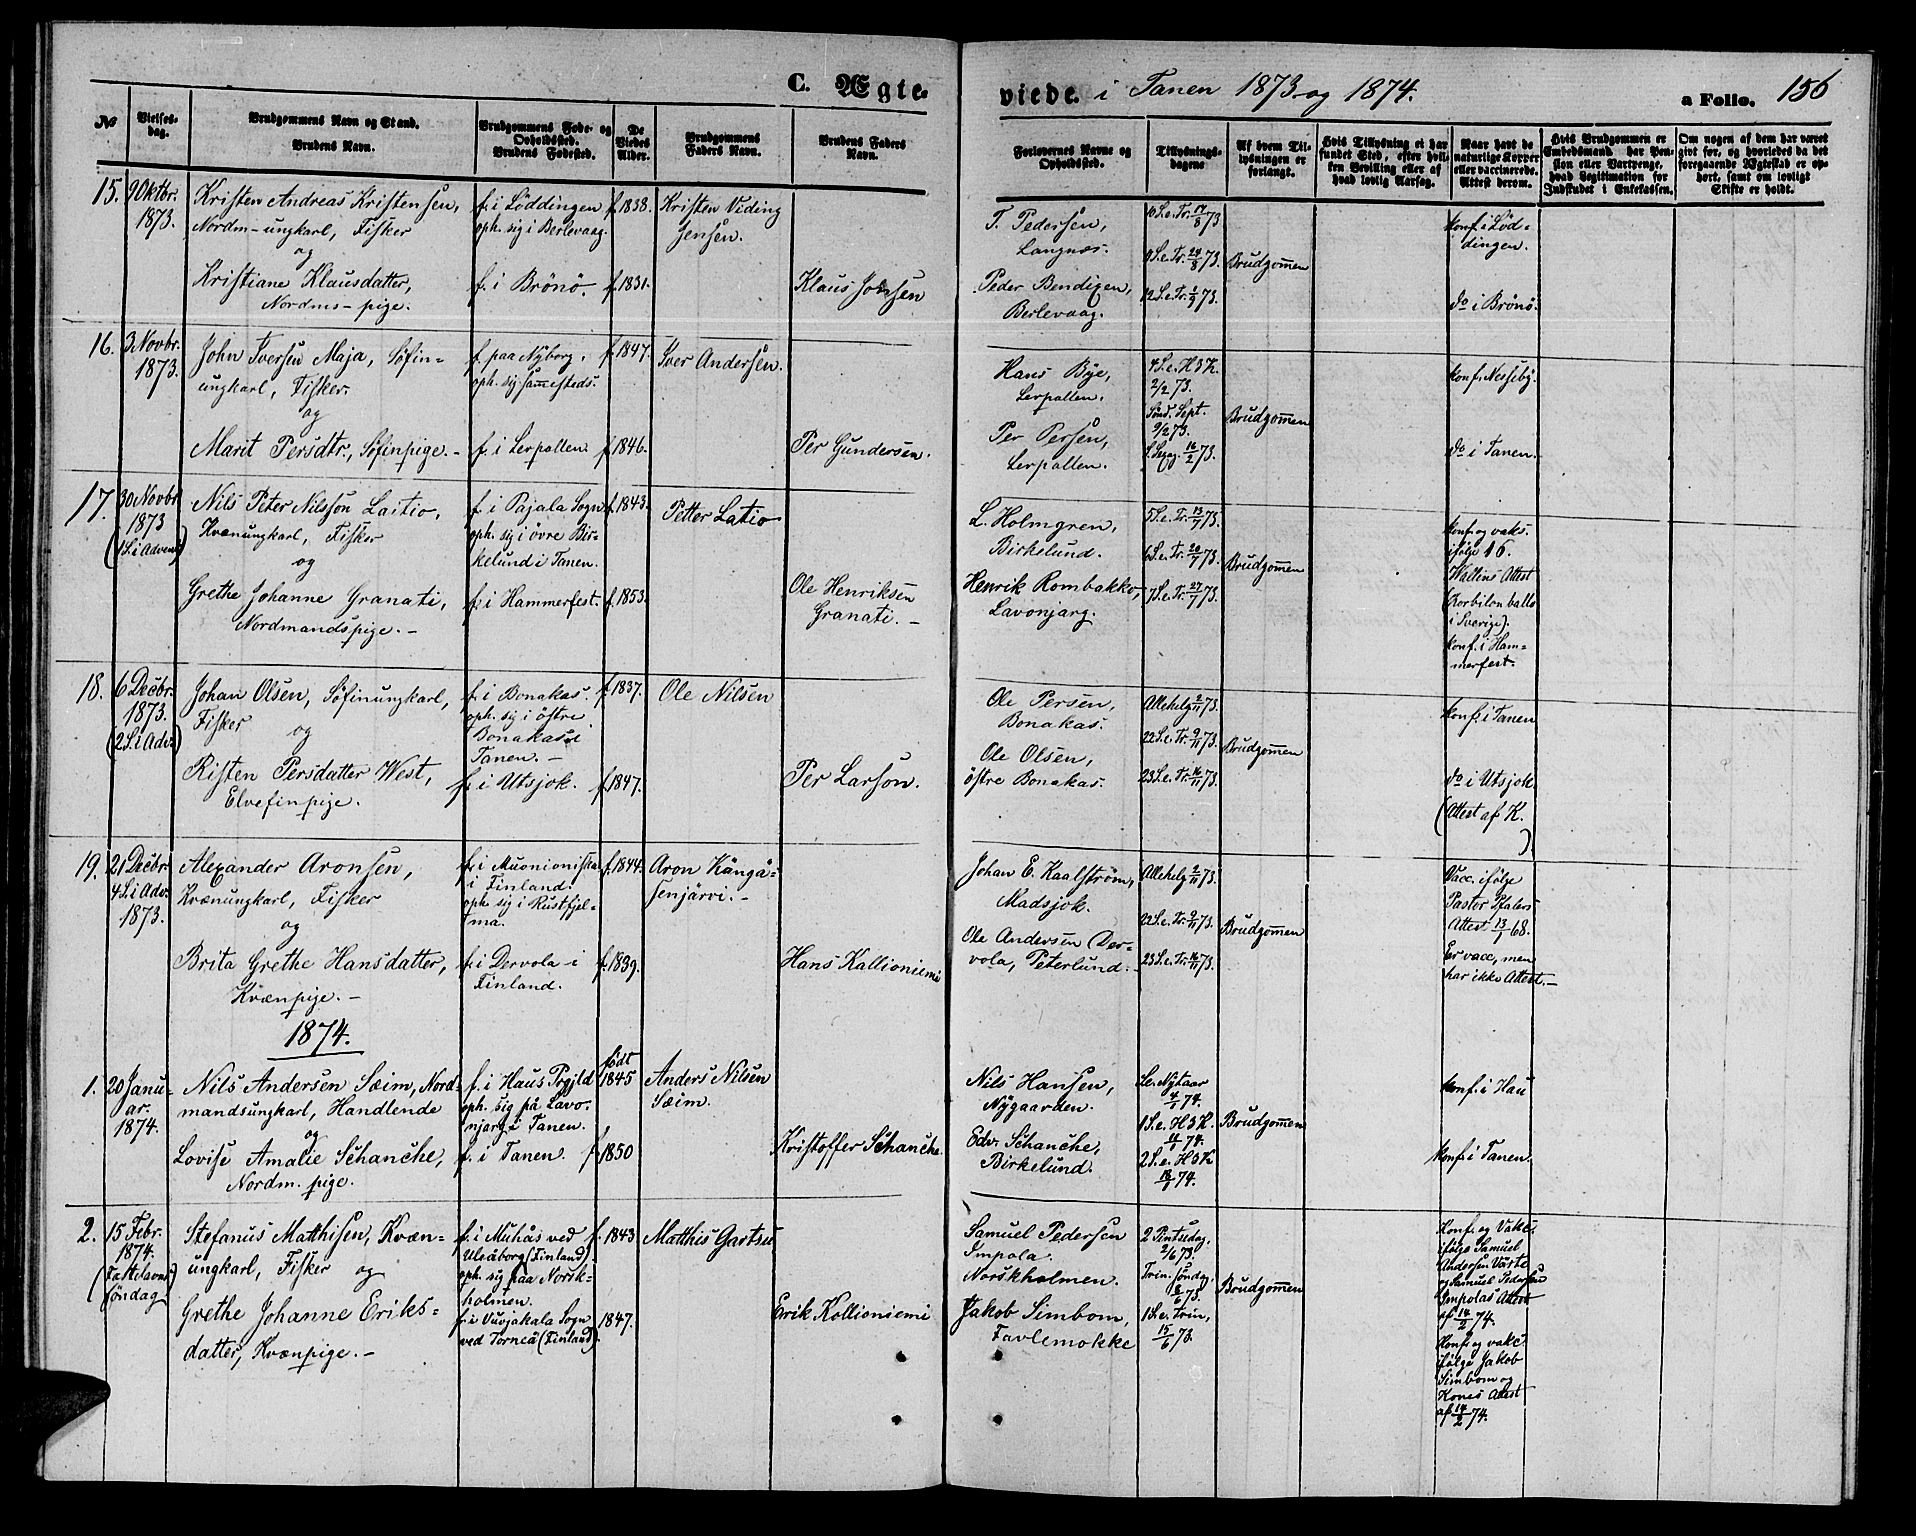 C. Ægte-
viede. i Tanen 1873 og 1874.
a Folio. 156
№
Vielses-
dag.
Brudgommens Navn og Stand.
Brudens Navn.
Brudgommens Føde- og
Opholdssted.
Brudens Fødested.
De
Viedes
Alder.
Brudgommens
Faders Navn.
Brudens Faders
Navn.
Forlovernes Navne og
Opholdssted.
Tillysnings-
dagene
Af hvem Til-
lysningen er
forlangt.
Hvis Tillysning ei har
fundet Sted, efter hvil-
ken Bevilling eller af
hvad lovlig Aarsag.
Naar havt de
naturlige Kopper
eller vaccinerede.
Attest derom.
Hvis Brudgommen er
Embedsmand, har Pen-
sion eller Vartpenge,
hvad Legitimation for
Indskudet i Enkekassen.
Om nogen af dem har været
gift før, og hvorledes da det
foregaaende Ægteskab er op-
hørt, samt om lovligt
Skifte er holdt.
15.
9 Oktbr.
1873.
Kristen Andreas Kristensen,
Nordm-ungkarl, Fisker
og
Kristiane Klausdatter,
Nordms-pige.
f. i Löddingen
oph. sig i Berlevaag.
f. i Brönö.
f. 1838.
f. 1831.
Kristen Viding
Jensen.
Klaus Jonsen
T. Pedersen,
Langnæs.
Peder Bendigen,
Berlevaag.
10 S. e. Tr. 17/8 73
9 S. e. Tr. 24/8 73.
12 S. e. Tr. 1/9 73.
Brudgommen
konf. i Löd-
dingen.
do i Brönö.
16.
3 Novbr.
1873.
John Iversen Maja, Söfin-
ungkarl, Fisker.
og
Marit Persdtr., Söfinpige. -
f. paa Nyborg.
oph. sig sammesteds.
f. i Lerpollen
f. 1847.
f. 1846.
Iver Andersen.
Per Gundersen.
Hans Bye,
Lerpollen.
Per Persen,
Lerpollen.
4 S. e. H 3 K.
2/2 73.
Sönd. Sept.
9/2 73.
S. Sexag. 16/2 73.
Brudgommen
konf. Nesseby.
do i Tanen.
17.
30 Novbr
1873
(1 S. i Advent)
Nils Peter Nilsson Laitio,
Kvænungkarl, Fisker
og
Grethe Johanne Granati,
Nordmandspige. -
f. i Pajala Sogn
oph. sig i övre Bir-
kelund i Tanen.
f. i Hammerfest.
f. 1843.
f. 1853.
Petter Latio
Ole Henriksen
Granati. -
L. Holmgren,
Birkelund.
Henrik Rombakko,
Lavonjarg.
5 S. e. Tr. 13/7 73.
6 S. e. Tr. 20/7 73.
7 S. e. Tr. 27/7 73.
Brudgommen
konf. og vaks.
ifölge
Wallins Attest
i Sverige).
konf. i Ham-
merfest.
18.
6 Decbr.
1873.
(2 S. i Adv.)
Johan Olsen, Söfinungkarl,
Fisker
og
Risten Persdatter West,
Elvefinpige.
f. i Bonakas.
oph. sig i östre
Bonakas i
Tanen. -
f. i Utsjok.
f. 1837.
f. 1847.
Ole Nilsen
Per Larson.
Ole Persen,
Bonakas.
Ole Olsen,
östre Bonakas.
Allehelg 2/11 73.
22 S. e. Tr. 9/11 73.
23 S. e. Tr. 16/11 73.
Brudgommen
konf. i Tanen
do i Utsjok
(Attest af K.
)
19.
21 Decbr
4 S. i Adv.
1873.
Alexander Aronsen,
Kvænungkarl, Fisker
og
Brita Grethe Hansdatter,
Kvænpige. -
f. i Muonioniska
i Finland.
oph. sig i Rustfjel-
ma.
f. i Dervola i
Finland.
f. 1844.
f. 1839.
Aron Kängä-
senjärvi. -
Hans Kallioniemi
Johan E. Kaalström,
Madsjok.
Ole Andersen Der-
vola, Peterlund. -
Allehelg 2/11 73.
22 S. e. Tr. 9/11 73.
23 S. e. Tr. 16/11 73.
Brudgommen
Vacc. ifölge
Pastor Pfalers
Attest 13/1 68.
Er vacc, men
har ikke Attest. -
1874.
1.
20 Janu-
ar.
1874.
Nils Andersen Sæim, Nord-
mandsungkarl, Handlende
og
Lovise Amalie Schanche,
Nordm. pige.
f. i Haus Prgjld
oph. sig på Lavo-
njarg i Tanen.
f. i Tanen.
födt
1845
f. 1850
Anders Nilsen
Sæim.
Kristoffer Schanche
Nils Hansen,
Nygaarden.
Edv. Schanche,
Birkelund.
S. e. Nytaar
4/1 74.
1 S. e. H 3 K.
11/1 74.
2 S. e. H 3 K
18/1 74.
Brudgommen
konf. i Hau
konf. i Tanen.
2.
15 Febr.
1874.
(Fastelavns
söndag)
Stefanus Matthisen, Kvæn-
ungkarl, Fisker og
Grethe Johanne Eriks-
datter, Kvænpige. -
f. i Muhås ved
Uleåborg (Finland)
oph. sig paa Norsk-
holmen.
f. i Vuojakala Sogn
ved Torneå (Finland).
f. 1843
1847.
Matthis Gartsu
Erik Kollioniemi
Samuel Pedersen
Impola.
Norskholmen.
Jakob Simbom,
Favlemokke
2 Pintsedag.
2/6 73.
Trin. söndag.
8/6 73.
1 S. e. Trin,
15/6 73.
Brudgommen
Konf. og Vakc.
ifölge Samuel
Andersen
og Samuel Pedersen
Impolas Attest
af 14/2 74.
Konf. og vakc.
ifölge Jakob
Simbom og
Kones Attest
af 14/2 74.